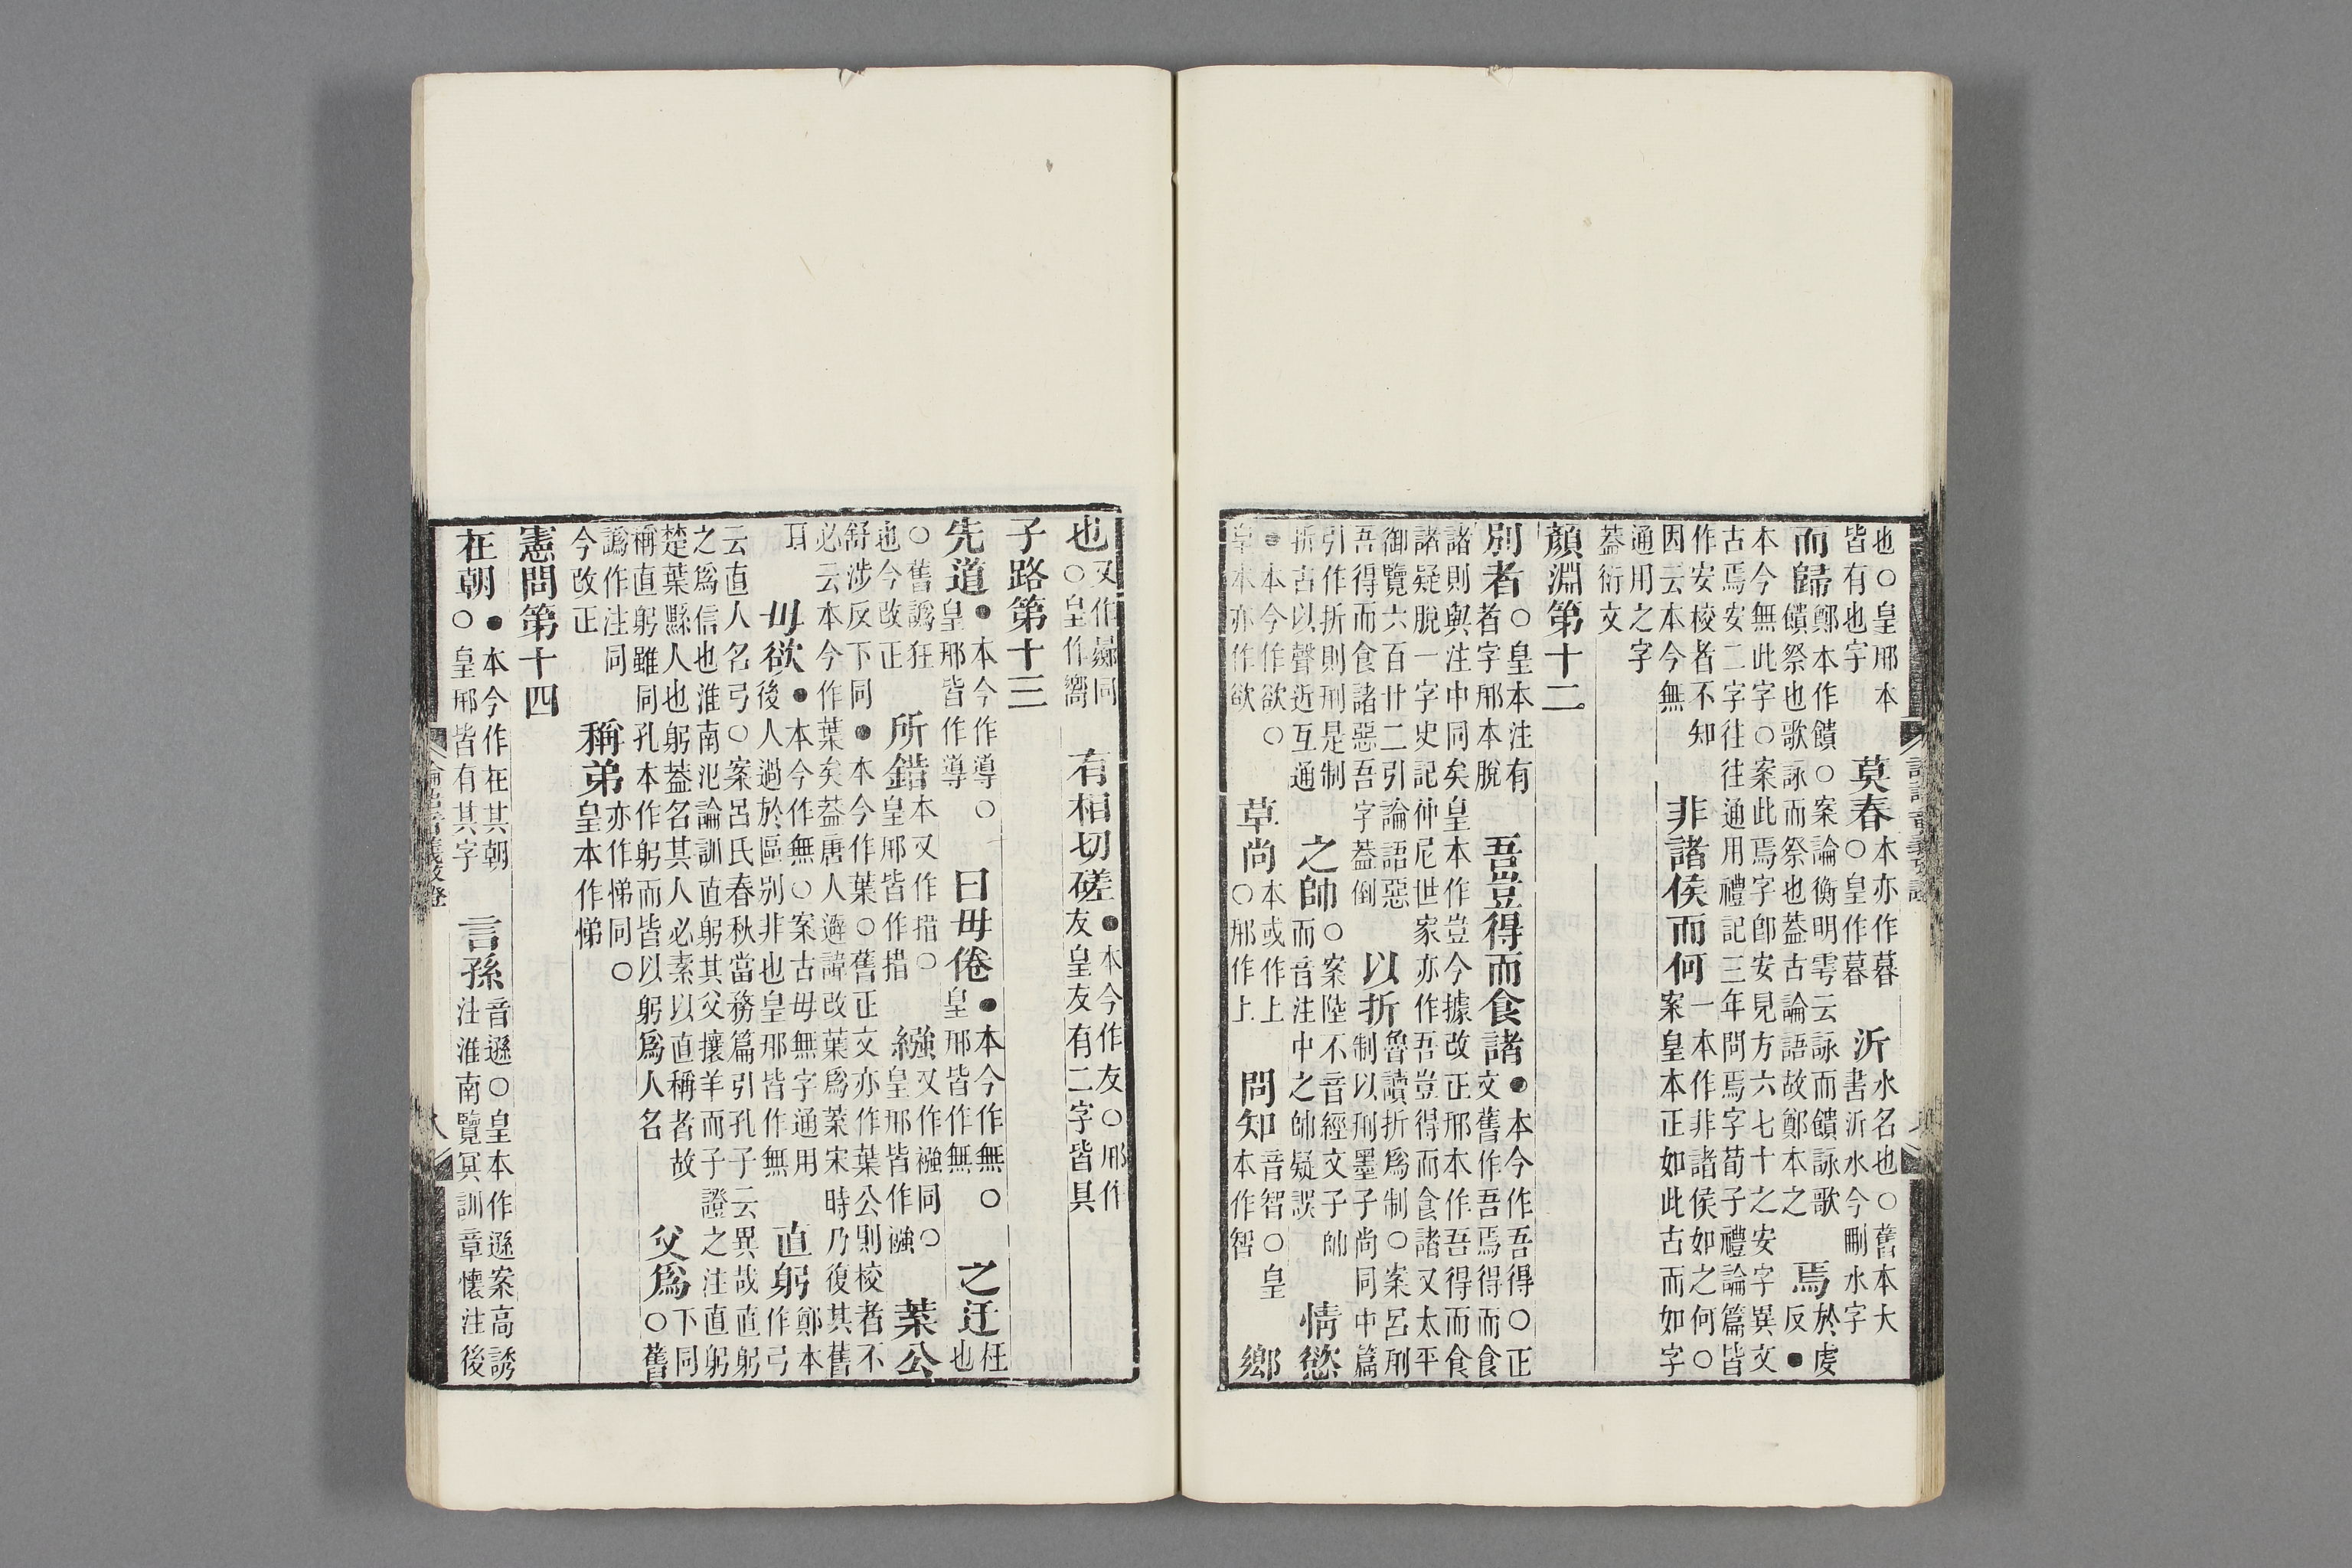 也○皇邢本皆有也字　莫春本亦作暮○皇作暮　沂水名也○舊本大書沂水今刪水字
而歸鄭本作饋○案論衡明雩云詠而饋詠歌饋祭也歌詠而祭也蓋古論語故鄭本之　焉於虔反●
本今無此字○案此焉字卽安見方六七十之安字異文古焉安二字往往通用禮記三年問焉字荀子禮論篇皆
作安校者不知因云本今無　非諸侯而何一本作非諸侯如之何○案皇本正如此古而如字
通用之字蓋衍文
顏淵第十二
別者○皇本注有者字邢本脫　吾豈得而食諸●本今作吾得○正文舊作吾焉得而食
諸則與注中同矣皇本作豈今據改正邢本作吾得而食諸疑脫一字史記仲尼世家亦作吾豈得而食諸又太平
御覽六百廿二引論語惡吾得而食諸惡吾字蓋倒　以折魯讀折爲制○案呂刑制以刑墨子尚同中篇
引作折則刑是制折古以聲近互通　之帥○案陸不音經文子帥而音注中之帥疑誤　情慾
●本今作欲○本亦作欲　草尚本或作上○邢作上　問知音智○皇本作智　鄉
也又作曏同○皇作嚮　有相切磋●本今作友○邢作友皇友有二字皆具
子路第十三
先道●本今作導○皇邢皆作導　曰毋倦●本今作無○皇邢皆作無　之迂枉也
○舊譌狂也今改正　所錯本又作措○皇邢皆作措　繈又作襁同○皇邢皆作襁　葉公
舒涉反下同●本今作葉○舊正文亦作葉公則校者不必云本今作葉矣蓋唐人避諱改葉爲枼宋時乃復其舊
耳　毋欲●本今作無○案古毋無字通用後人過於區別非也皇邢皆作無　直躬鄭本作弓
云直人名弓○案呂氏春秋當務篇引孔子云異哉直躬之爲信也淮南氾論訓直躬其父攘羊而子證之注直躬
楚葉縣人也躬蓋名其人必素以直稱者故稱直躬雖同孔本作躬而皆以躬爲人名　父爲下同○舊
譌作注同今改正　稱弟亦作悌同○皇本作悌
憲問第十四
在朝●本今作在其朝○皇邢皆有其字　言孫音遜○皇本作遜案高誘注淮南覽冥訓章懷注後